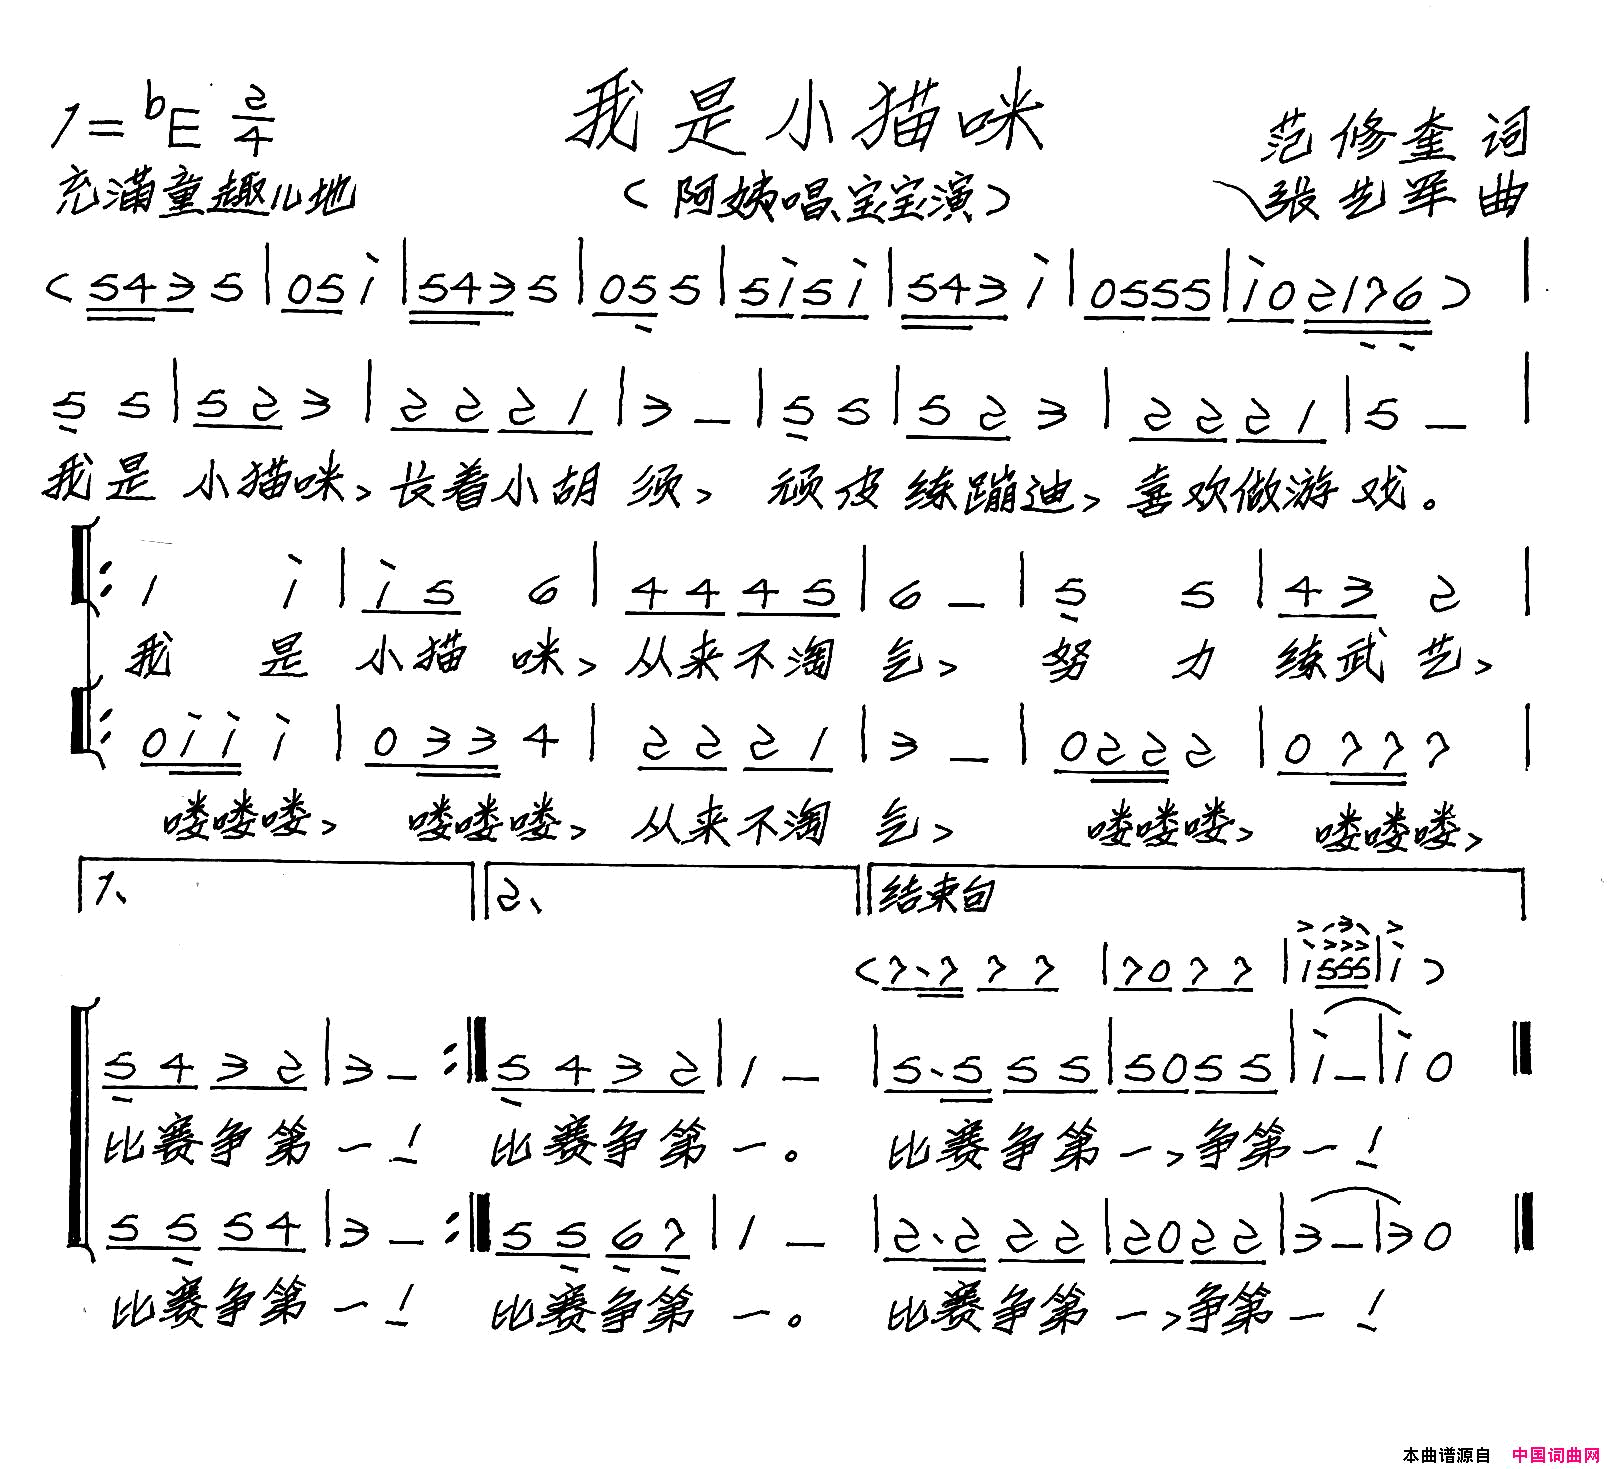 我是小猫咪
1=ᵇE 2/4
范修奎 词
充满童趣儿地
（阿姨唱、宝宝演）
张艺军 曲
（5435|05i̇|5435|05̣5|5i̇5i̇|543i̇|0555|i̇0217̣6̣）|
5̣ 5|5 2 3|2 2 2 1|3 –|5̣ 5|5 2 3|2 2 2 1|5 –|
我是 小猫咪，长着小胡 须，顽皮 练蹦迪，喜欢做游戏。
1 i̇|i̇ 5 6|4 4 4 5|6 –|5̣ 5|4 3 2|
我 是 小猫 咪，从来不淘 气，努 力 练武艺，
0 i̇ i̇ i̇|0 3 3 4|2 2 2 1|3 –|0 2 2 2|0 7 7 7|
喽喽喽，喽喽喽，从来不淘 气，喽喽喽，喽喽喽，
1、 2、 结束句
（7·7 7 7|7 0 7 7|i̇ 5 5 5|i̇）
5̣ 4 3 2|3 – :‖5̣ 4 3 2|1 –|5·5 5 5|5 0 5 5|i̇ –|i̇ 0‖
比赛争第 一！ 比赛争第 一。 比赛争第一，争第一！
5 5̣ 5 4|3 – :‖5 5̣ 6̣ 7̣|1 –|2·2 2 2|2 0 2 2|3 –|3 0‖
比赛争第 一！ 比赛争第 一。 比赛争第一，争第一！
本曲谱源自 中国词曲网